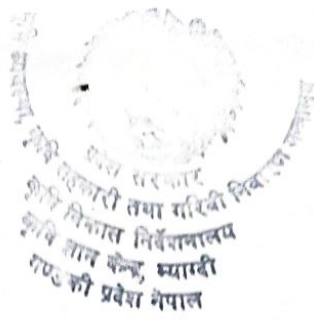 प्रदेश सरकार
कृषि सहकारी तथा गरिबी निवारण
कृषि विकास निर्देशनालय
कृषि ज्ञान केन्द्र, म्याग्दी
गण्डकी प्रदेश नेपाल